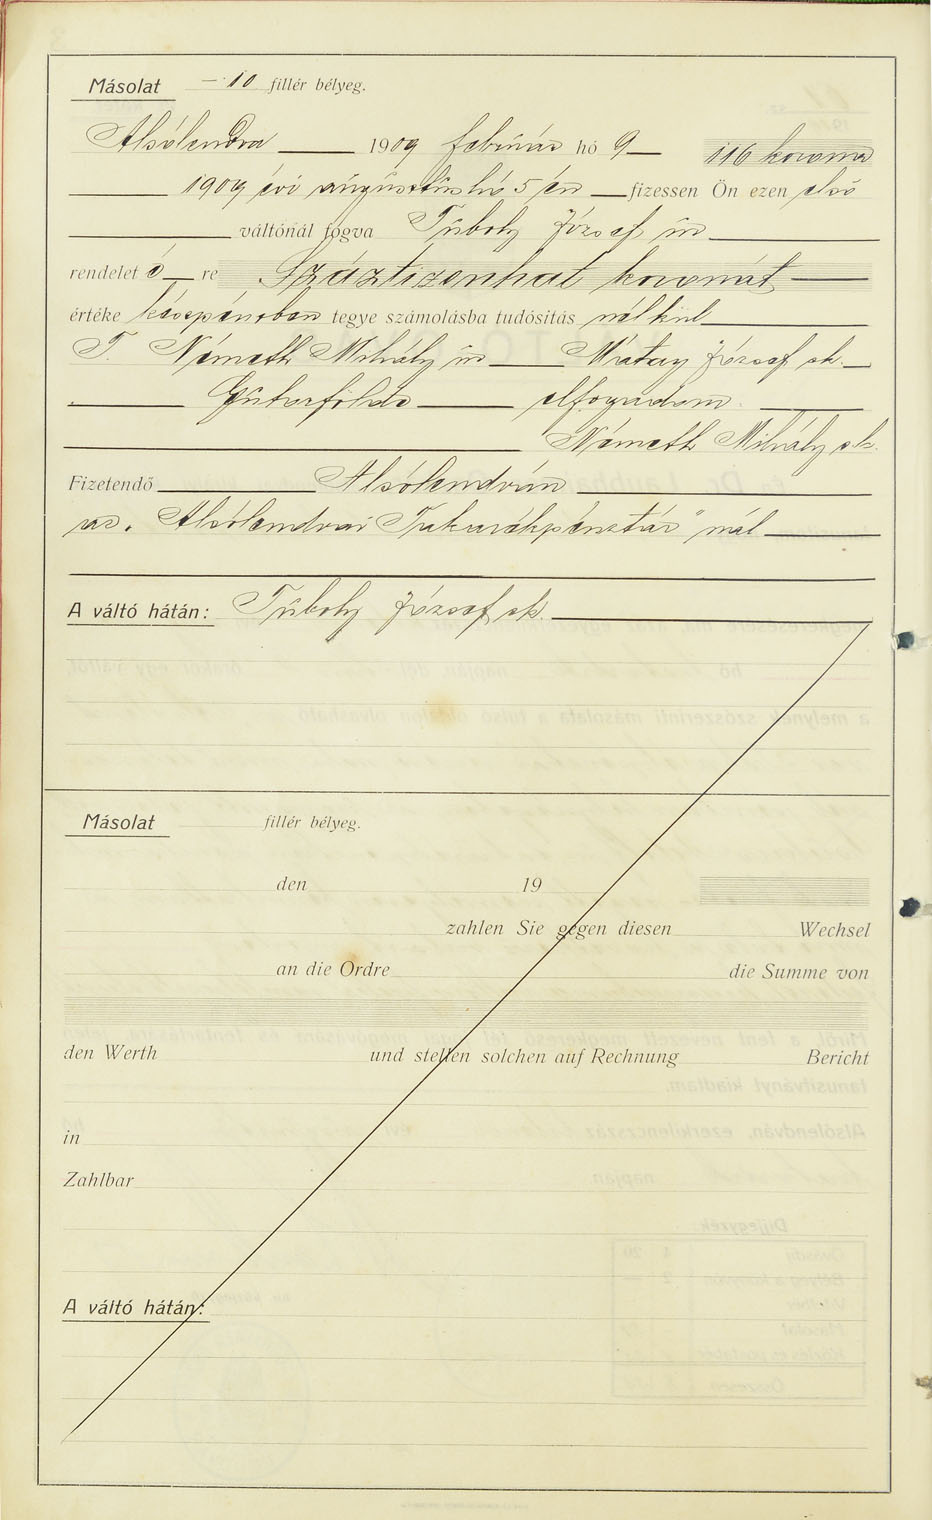 Másolat — 10 fillér bélyeg.
Alsólendva 1909 február hó 9 116 korona
1909 évi augusztus hó 5 én fizessen Ön ezen első
váltónál fogva Tüboly József úr
rendelet é re Száztizenhat koronát
értéke készpénzben tegye számolásba tudósítás nélkül
T. Németh Mihály úr Mátay József sk.
elfogadom.
Németh Mihály sk.
Fizetendő Alsólendván
az „Alsólendvai Takarékpénztár" nál
A váltó hátán: Tüboly József sk.
Másolat fillér bélyeg.
den 19
zahlen Sie gegen diesen Wechsel
an die Ordre die Summe von
den Werth und stellen solchen auf Rechnung Bericht
in
Zahlbar
A váltó hátán: